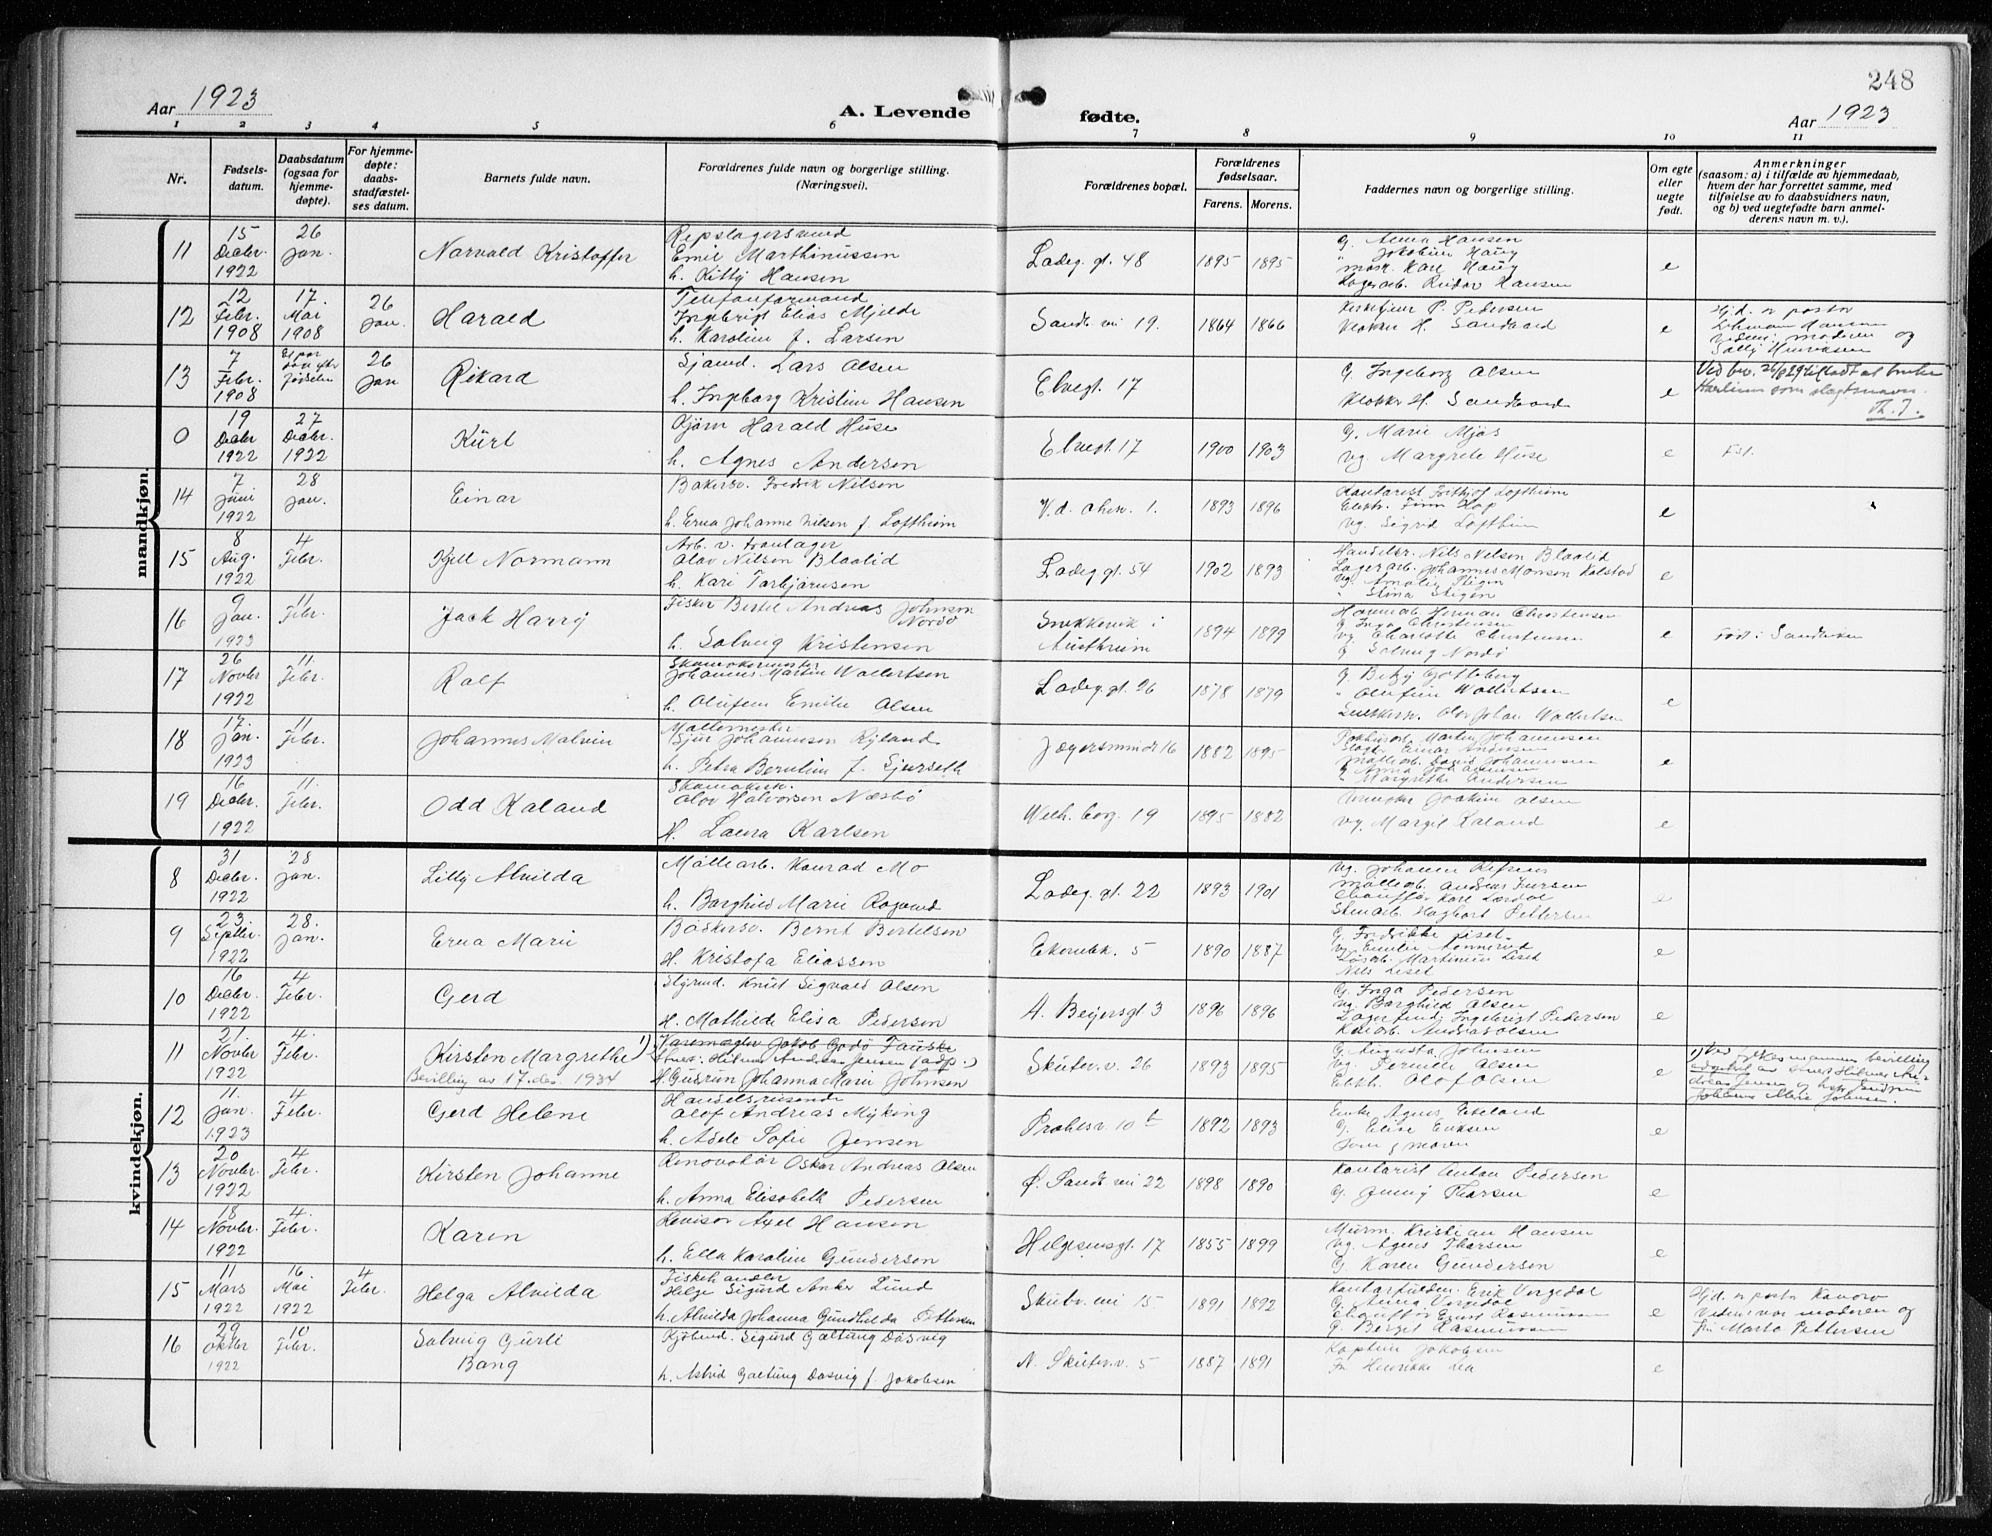 248
Aar 1923
A. Levende
fødte.
Aar 1923
1 2 3 4 5 6 7 8 9 10 11
Nr.
Fødsels-
datum.
Daabsdatum
(ogsaa for
hjemme-
døpte).
For hjemme-
døpte:
daabs-
stadfæstel-
ses datum.
Barnets fulde navn.
Forældrenes fulde navn og borgerlige stilling.
(Næringsvei).
Forældrenes bopæl.
Forældrenes
fødselsaar.
Farens. Morens.
Faddernes navn og borgerlige stilling.
Om egte
eller
uegte
født.
Anmerkninger
(saasom: a) i tilfælde av hjemmedaab,
hvem der har forrettet samme, med
tilføielse av to daabsvidners navn,
og b) ved uegtefødte barn anmel-
derens navn m. v.).
mandkjøn.
11
15
Decbr.
1922
26
Jan.
Norvald Kristoffer
Repslagersvend
Emil Marthinussen
h. Kitty Hansen
Ladeg. gt. 48
1895 1895
G. Anna Hansen
" Jakobine Haug
Kare Haug
Lagerarb. Reidar Hansen
e
12
12
Febr.
1908
17.
Mai
1908
26
Jan.
Harald
Telefonformand
Ingebrigt Elias Mjelde
h. Karoline f. Larsen
Sandv. vei 19.
1864 1866
Kirketjener P. Pedersen
Klokker H. Sandvard
e
Hjd. v pastor
Lehmann Hansen
Vidner: moderen og
Sally Henriksen
13
7
Febr.
1908
fødselen
26
Jan
Rikard
Sjømd. Lars Olsen
h. Ingeborg Kristine Hansen
Elvegt. 17
G. Ingeborg Olsen
Klokker H. Sandvard
e
Ved bev. 26/8 29 tilstadt at bruke
som slegtsnavn.
Th. J.
0
19
Decbr
1922
27
Decbr.
1922
Kurt
Bjørn Harald Huse
h. Agnes Andersen
Elvegt. 17
1900 1903
G. Marie Mjøs
Vg. Margrete Huse
e
14
7
Juni
1922
28
Jan.
Einar
Bakersv. Fredrik Nilsen
h. Erna Johanne Nilsen f. Loftheim
V. d. 1.
1893 1896
Kontorist Frithjof Loftheim
Elektr. Finn Hop
Vg. Sigrid Loftheim
e
15
8
Aug.
1922
4
Febr.
Kjell Normann
Arb. v.
Olav Nilsen Blaalid
h. Kari Torbjørnsen
Ladeg gt. 54
1902 1893
Handelsr. Nils Nilsen Blaalid
Lagerarb. Johannes Monsen Kalstad
Vg. Amalie Stigen
" Stina Stigen
e
16
9
Jan.
1923
11
Febr.
Jack Harry
Fisker Bertel Andreas Johnson
Nordø
h. Solveig Kristensen
Snekkevik i
Austrheim
1894 1899
Havnearb. Herman Christensen
G Inga Christensen
Vg. Charlotte Christensen
G Solveig Nordø
e
Født i Sandviken
17
26
Novbr
1922
11
Febr.
Rolf
Skomakermester
Johannes Martin Wallertsen
h. Olufine Emilie Olsen
Ladeg. gt. 26
1878 1879
G. Betzy Gotteberg
" Olufine Wallertsen
Olav Johan Wallertsen
e
18
17.
Jan.
1923
11
Febr.
Johannes Malvin
Møllemester
Sjur Johannesen Kyland
h. Petra Berntine f. Gjerseth
Jægersmindt 16
1882 1895
Martin Johannesen
Einar Andersen
Møllearb. David Johannesen
G Anna Johannesen
G Margrethe Andersen
e
19
16
Decbr.
1922
11.
Febr.
Odd Kaland
Skomakersv.
Olav Halvorsen Næsbø
H. Laura Karlsen
Welh. borg. 19
1895 1882
Joakim Olsen
Vg. Margit Kaland
e
kvindekjøn.
8
31
Decbr.
1922
28
Jan.
Lilly Alvilda
Møllearb. Konrad Mo
h. Borghild Marie
Ladeg. gt. 22
1893 1901
Vg. Johanne
Møllearb. Andreas Iversen
Chauffør Kåre Lærdal
Stenarb. Hagbart Pettersen
e
9
23.
Septbr.
1922
28.
Jan.
Erna Marie
Bødkersv. Bernt Bertelsen
H. Kristofa Eliassen
Ekerebk. 5
1890 1887
G. Fredrikke Liset
Vg. Emilie
Martinius Liset
Nils Liset
e
10
16
Decbr.
1922
4
Febr.
Gerd
Styrmd. Knut Sigvald Olsen
H. Mathilde Elisa Pedersen
A. Beyersgt 3
1896 1896
G. Inga Pedersen
Vg. Borghild Olsen
Lagerfmd. Ingebrigt Pedersen
Andreas Olsen
e
11
21.
Novbr
1922
4
Febr.
Kirsten Margrethe 1)
Bevilling av 17. des. 1934
Varemægler Jakob Godø Fauske
Hilmar Andreas Jensen (adp.)
H. Gudrun Johanna Marie Johnsen
Skutev. v. 26
1893 1895
G. Augusta Johnsen
Vg. Pernille Olsen
Elektr. Olof Olsen
e
1) Ved fylkesmannens bevilling
adoptert av Hilmar An-
dreas Jensen og hstr Gudrun
Johanna Marie Johnsen.
12
11.
Jan.
1923
4
Febr.
Gerd Helene
Handelsreisende
Olof Andreas Myking
h. Adele Sofie Jensen
Prahlsv. 10 b
1892 1893
Enke Agnes Eteland
G. Elise Eriksen
Som g moren
e
13
20
Novbr.
1922
4
Febr.
Kirsten Johanne
Renovatør Oskar Andreas Olsen
h. Anna Elisabeth Pedersen
Ø. Sandv vei 22
1898 1890
Kontorist Anton Pedersen
G. Jenny Thorsen
e
14
18
Novbr.
1922
4.
Febr.
Karen
Revisor Axel Hansen
h. Ella Karoline Gundersen
Helgesensgt. 17
1855 1899
Murm. Kristian Hansen
Vg. Agnes Thorsen
G. Karen Gundersen
e
15
11
Mars
1922
16
Mai
1922
4
Febr.
Helga Alvilda
Fiskehandler
Helge Sigurd Anker Lund
h. Alvilda Johanna Gundhilda Pettersen
Skutev. vei 15
1891 1892
Kontorfuldm. Erik Vorgedal
G. Anna Vorgedal
Chauffør Ernst Rasmussen
G. Berget Rasmussen
e
Hjd. v pastor Kavov
Vidner var moderen og
fru Marta Pettersen
16
29
Oktbr
1922
10
Febr.
Solveig Gurli
Bang
Kjøbmd. Sigurd Galtung Døsvig
h. Astrid Galtung Døsvig f. Jakobsen
N. Skutev. v. 5
1887 1891
Kaptein Jakobsen
Fr Henrikke Mo
e